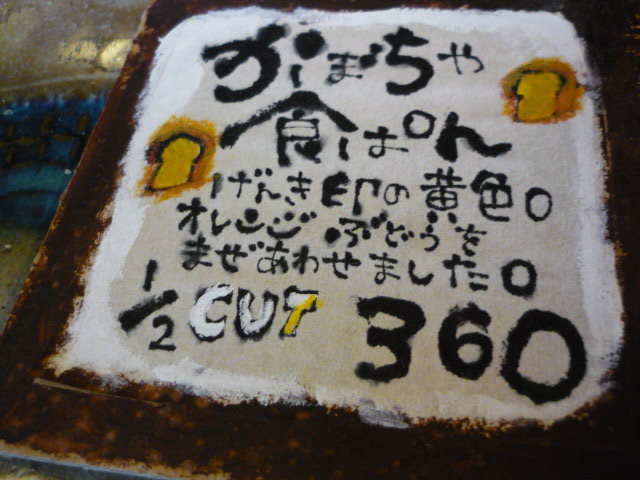 かぼちゃ
食ぱん
げんき印の黄色。
オレンジぶどうを
まぜあわせました。
1/2 CUT 360